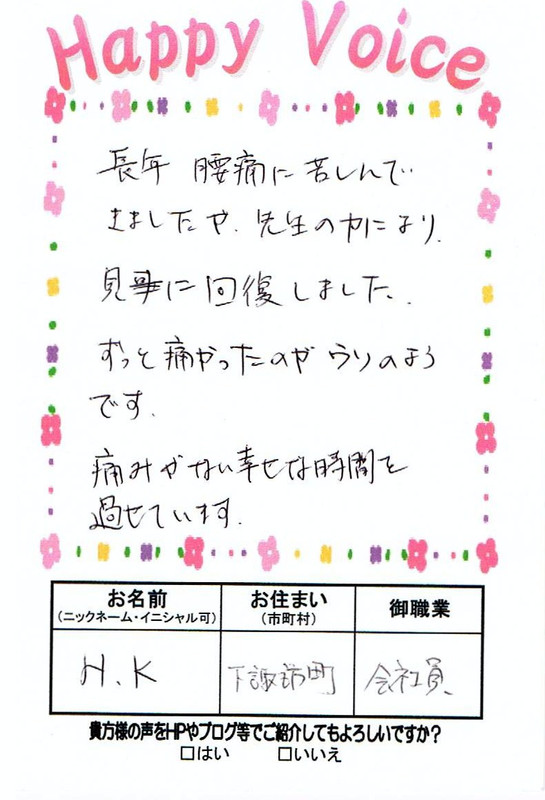 Happy Voice
長年 腰痛に苦しんで
きましたが、先生の力により、
見事に回復しました。
ずっと痛かったのがウソのよう
です。
痛みがない幸せな時間を
過せています。
お名前
(ニックネーム・イニシャル可)
お住まい
(市町村)
御職業
H.K
下諏訪町
会社員
貴方様の声をHPやブログ等でご紹介してもよろしいですか?
□はい □いいえ